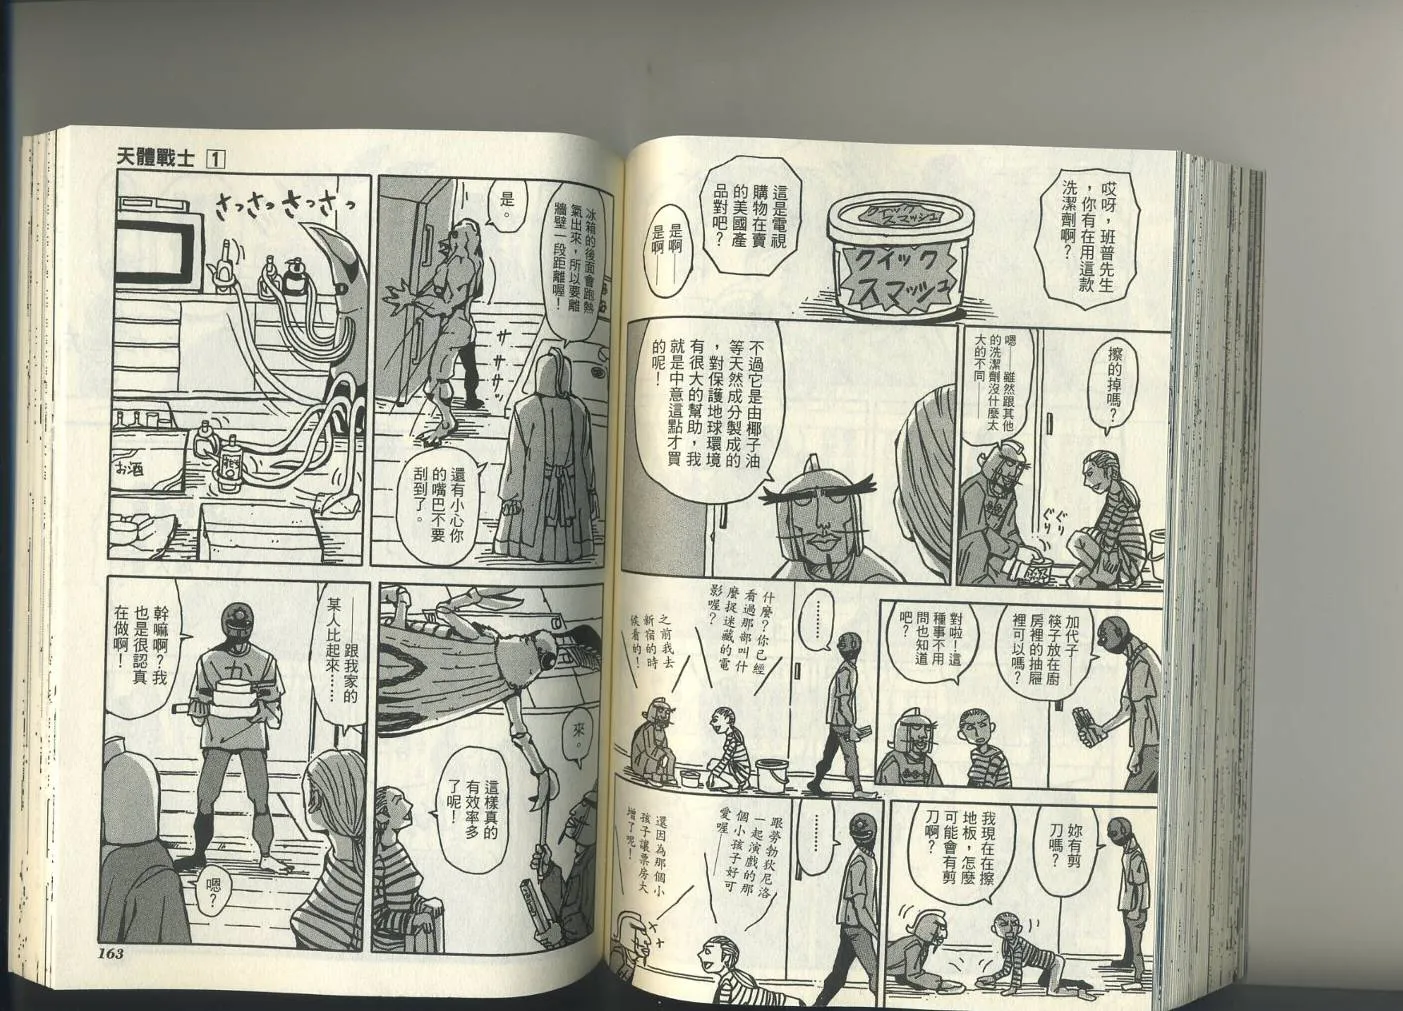 哎呀，班普先生
，你有在用這款
洗潔劑啊？
クイック
スマッシュ
クイック
スマッシュ
這是電視
購物在賣
的美國產
品對吧？
是啊——
是啊——
擦的掉嗎？
嗯——雖然跟其他
的洗潔劑沒什麼太
大的不同——
ぐり
ぐり
不過它是由椰子油
等天然成分製成的
，對保護地球環境
有很大的幫助，我
就是中意這點才買
的呢！
加代子——
筷子放在廚
房裡的抽屜
裡可以嗎？
對啦！這
種事不用
問也知道
吧？
⋯⋯⋯
什麼？你已經
看過那部叫什
麼捉迷藏的電
影喔？
之前我去
新宿的時
候看的！
妳有剪
刀嗎？
我現在在擦
地板，怎麼
可能會有剪
刀啊？
⋯⋯⋯
跟勞勃狄尼洛
一起演戲的那
個小孩子好可
愛喔——
還因為那個小
孩子讓票房大
增了呢！
天體戰士 1
冰箱的後面會跑熱
氣出來，所以要離
牆壁一段距離喔！
是。
ササササッ
還有小心你
的嘴巴不要
刮到了。
さっさっさっさっ
お酒
來。
這樣真的
有效率多
了呢！
——跟我家的
某人比起來⋯⋯
幹嘛啊？我
也是很認真
在做啊！
嗯？
163